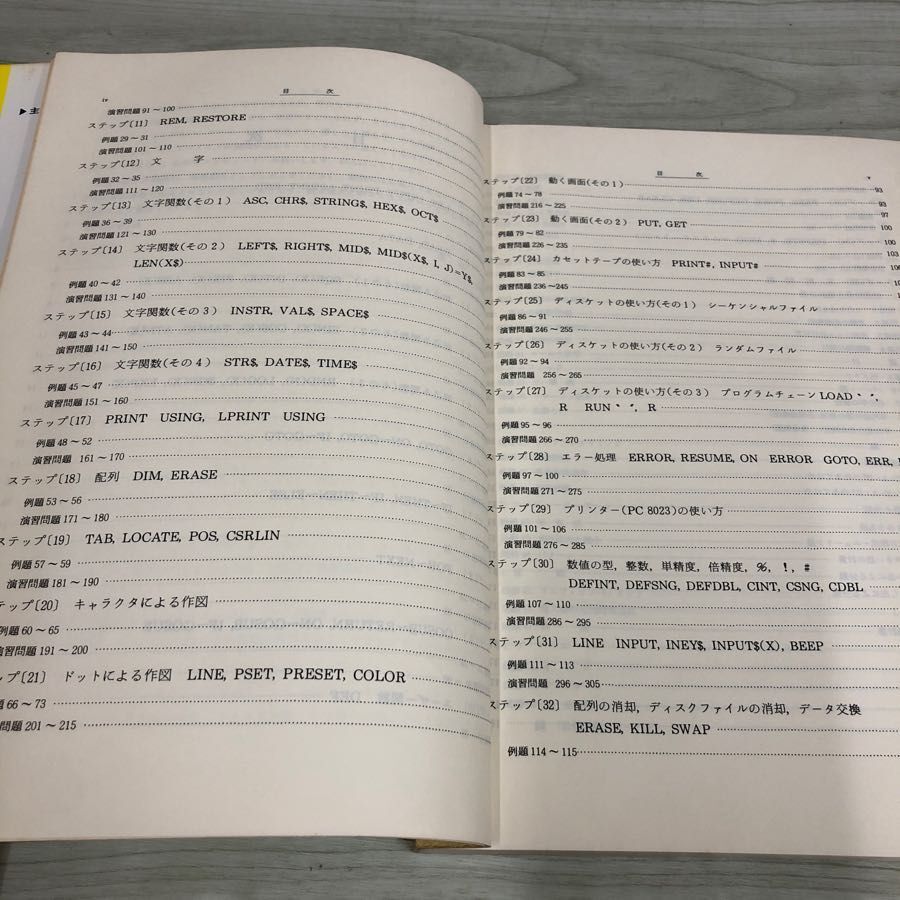 ▶主
iv
目 次
演習問題 91～100
ステップ〔11〕 REM, RESTORE
例題 29～31
演習問題 101～110
ステップ〔12〕 文 字
例題 32～35
演習問題 111～120
ステップ〔13〕 文字関数(その1) ASC, CHR$, STRING$, HEX$, OCT$
例題 36～39
演習問題 121～130
ステップ〔14〕 文字関数(その2) LEFT$, RIGHT$, MID$, MID$(X$, I, J)=Y$,
LEN(X$)
例題 40～42
演習問題 131～140
ステップ〔15〕 文字関数(その3) INSTR, VAL$, SPACE$
例題 43～44
演習問題 141～150
ステップ〔16〕 文字関数(その4) STR$, DATE$, TIME$
例題 45～47
演習問題 151～160
ステップ〔17〕 PRINT USING, LPRINT USING
例題 48～52
演習問題 161～170
ステップ〔18〕 配列 DIM, ERASE
例題 53～56
演習問題 171～180
ステップ〔19〕 TAB, LOCATE, POS, CSRLIN
例題 57～59
演習問題 181～190
テップ〔20〕 キャラクタによる作図
例題 60～65
演習問題 191～200
ップ〔21〕 ドットによる作図 LINE, PSET, PRESET, COLOR
題 66～73
問題 201～215
目 次
v
ステップ〔22〕 動く画面(その1) 93
例題 74～78 93
演習問題 216～225 97
ステップ〔23〕 動く画面(その2) PUT, GET 100
例題 79～82 100
演習問題 226～235 103
ステップ〔24〕 カセットテープの使い方 PRINT#, INPUT#
例題 83～85
演習問題 236～245
ステップ〔25〕 ディスケットの使い方(その1) シーケンシャルファイル
例題 86～91
演習問題 246～255
ステップ〔26〕 ディスケットの使い方(その2) ランダムファイル
例題 92～94
演習問題 256～265
ステップ〔27〕 ディスケットの使い方(その3) プログラムチェーン LOAD〝 〞,
R RUN〝 〞, R
例題 95～96
演習問題 266～270
ステップ〔28〕 エラー処理 ERROR, RESUME, ON ERROR GOTO, ERR,
例題 97～100
演習問題 271～275
ステップ〔29〕 プリンター(PC 8023)の使い方
例題 101～106
演習問題 276～285
ステップ〔30〕 数値の型, 整数, 単精度, 倍精度, %, !, #
DEFINT, DEFSNG, DEFDBL, CINT, CSNG, CDBL
例題 107～110
演習問題 286～295
ステップ〔31〕 LINE INPUT, INEY$, INPUT$(X), BEEP
例題 111～113
演習問題 296～305
ステップ〔32〕 配列の消却, ディスクファイルの消却, データ交換
ERASE, KILL, SWAP
例題 114～115